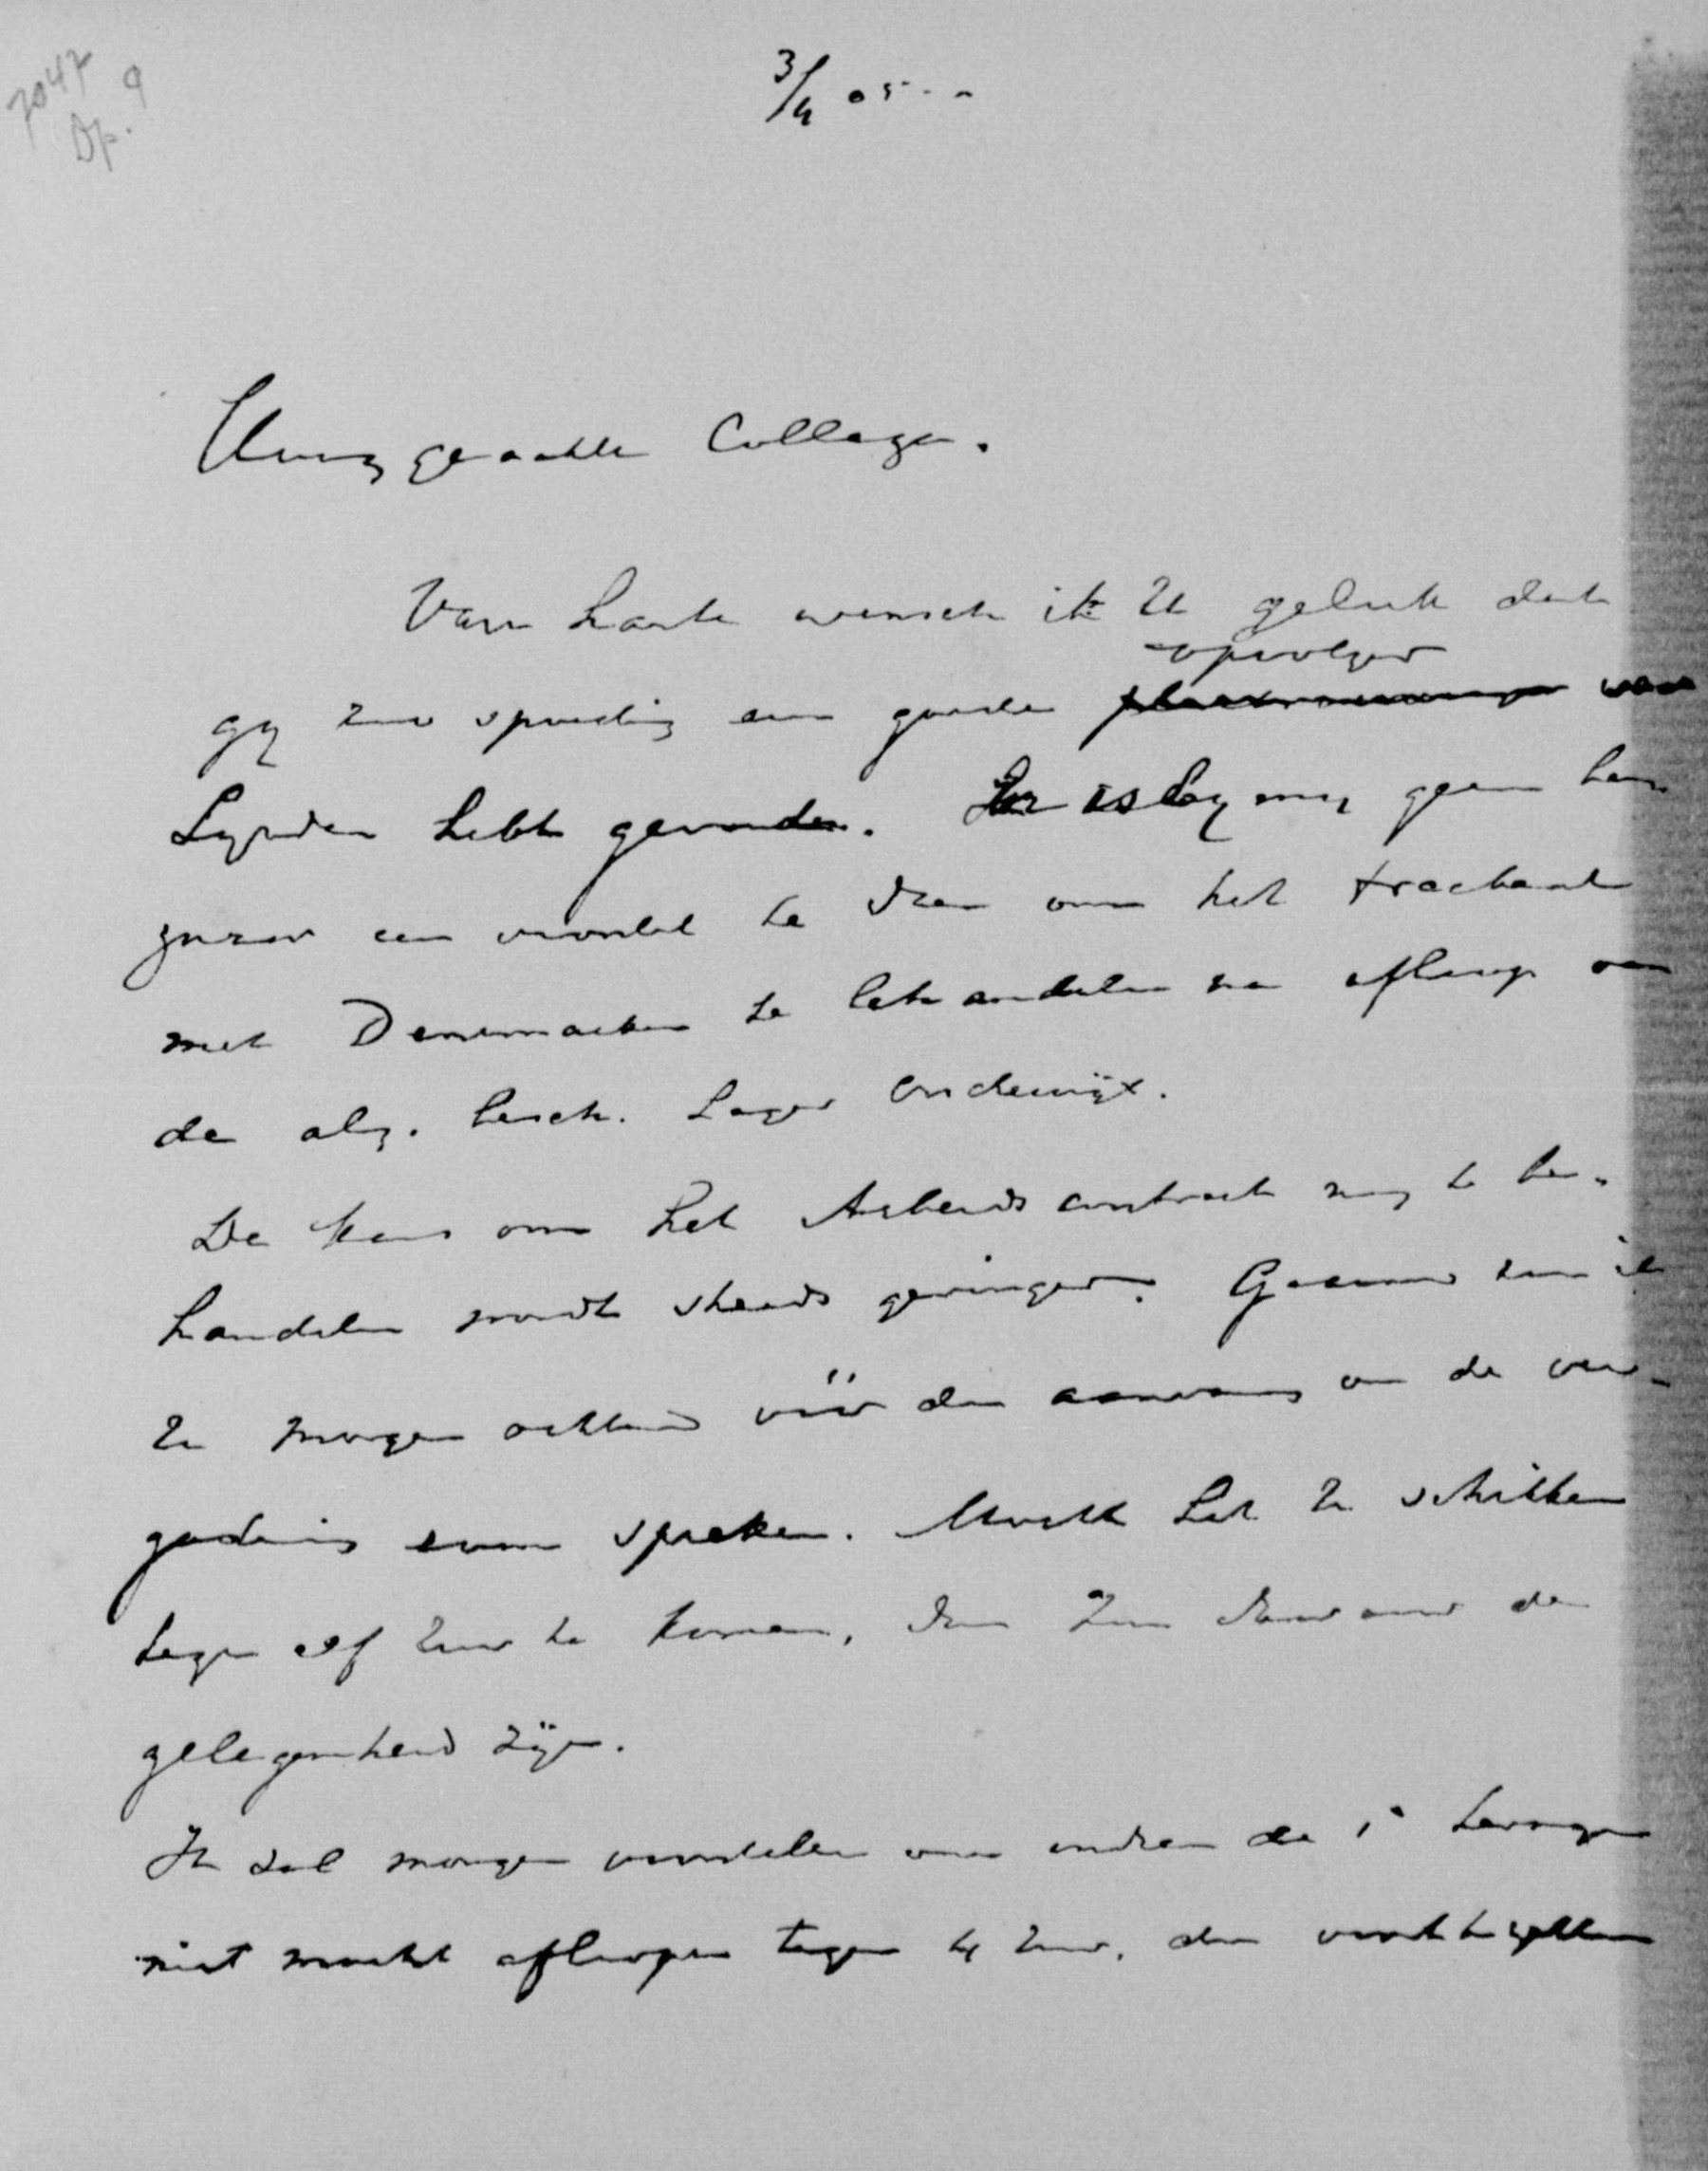 7047
Dp. 9
3/4 05
Hooggeachte Collega.
Van harte wensch ik U geluk dat
opvolger
gij zoo spoedig een goeden van
Lynden hebt gevonden. Er is bij mij geen be-
zwaar een voorstel te doen om het tractaat
met Denemarken te behandelen na afloop van
de alg. besch. Lager Onderwijs.
De kans om het Arbeidscontract nog te be-
handelen wordt steeds geringer. Gaarne zou ik
U morgen ochtend vóór den aanvang van de ver-
gadering even spreken. Mocht het U schikken
tegen elf uur te komen, dan zou daarvoor de
gelegenheid zijn.
Ik zal morgen voorstellen om indien de
niet mocht afloopen tegen 4 uur, den